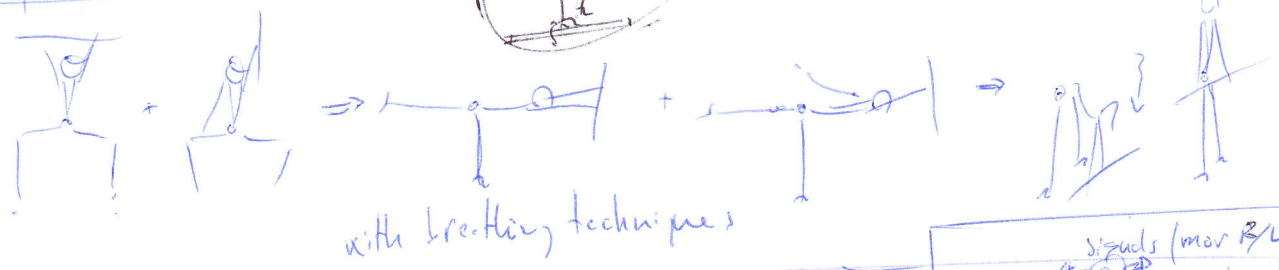 with breathing techniques
signals (mov R/L